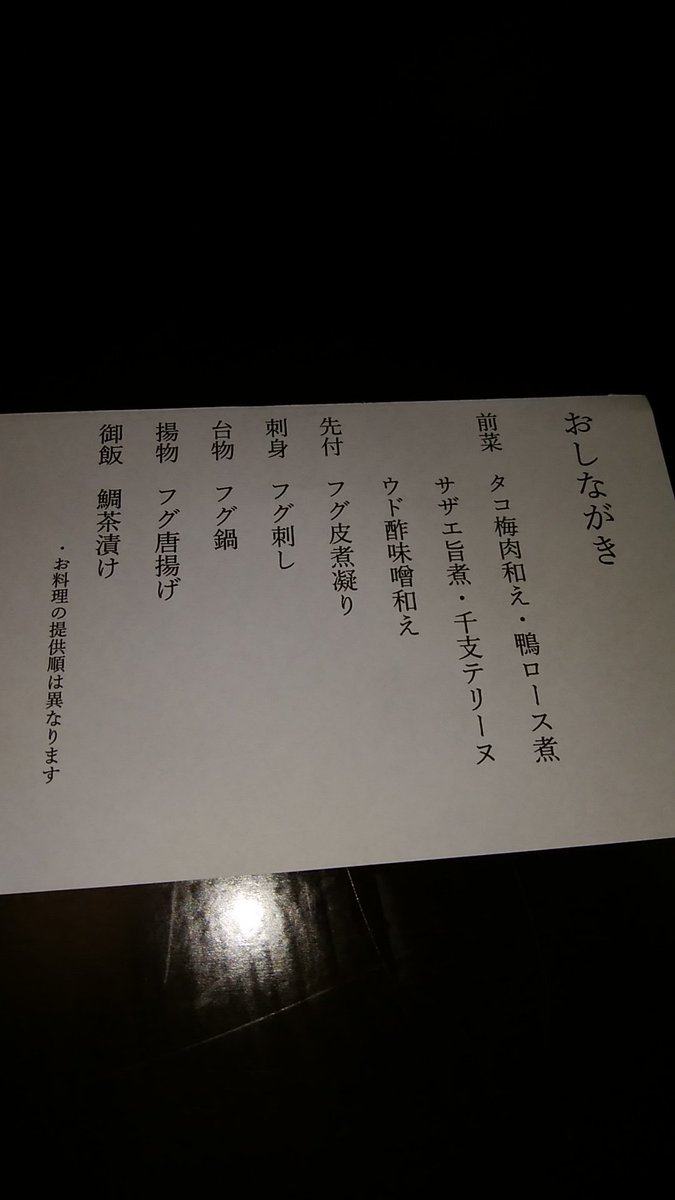 おしながき
前菜 タコ梅肉和え・鴨ロース煮
サザエ旨煮・千支テリーヌ
ウド酢味噌和え
先付 フグ皮煮凝り
刺身 フグ刺し
台物 フグ鍋
揚物 フグ唐揚げ
御飯 鯛茶漬け
・お料理の提供順は異なります